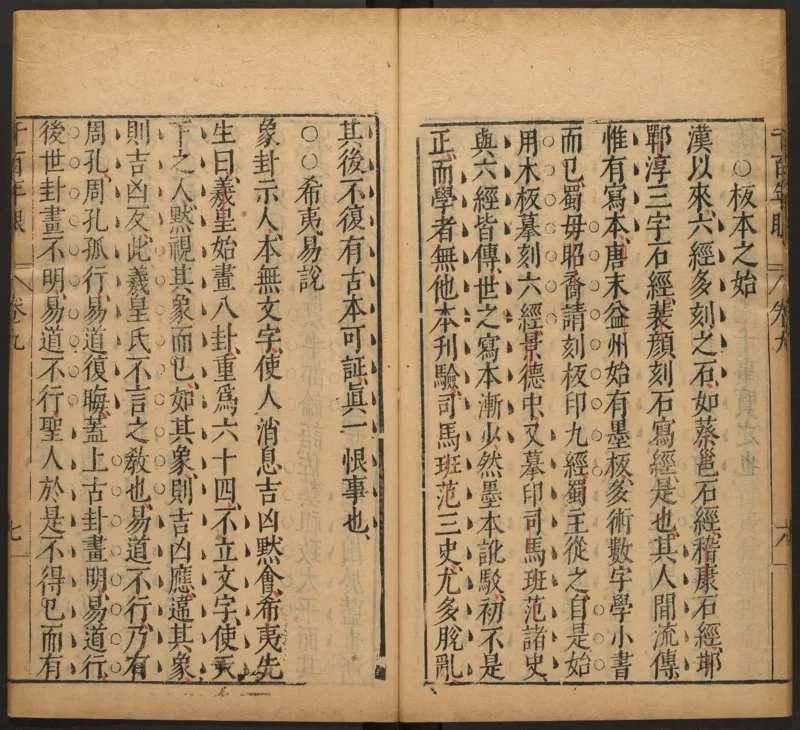 ○板本之始
漢以來六經多刻之石如蔡邕石經稽康石經邯
鄲淳三字石經裴頠刻石寫經是也其人間流傳
惟有寫本唐末益州始有墨板多術數字學小書
而已蜀毋昭裔請刻板印九經蜀主從之自是始
用木板摹刻六經景德中又摹印司馬班范諸史
與六經皆傳世之寫本漸少然墨本訛駁初不是
正而學者無他本刋驗司馬班范三史尤多脫亂
卷九
六
其後不復有古本可証真一恨事也
○○希夷易說
象卦示人本無文字使人消息吉凶默會希夷先
生曰羲皇始畫八卦重爲六十四不立文字使天
下之人默視其象而已如其象則吉凶應違其象
則吉凶反此羲皇氏不言之敎也易道不行乃有
周孔周孔孤行易道復晦蓋上古卦畫明易道行
後世卦畫不明易道不行聖人於是不得已而有
千百年眼
卷九
七